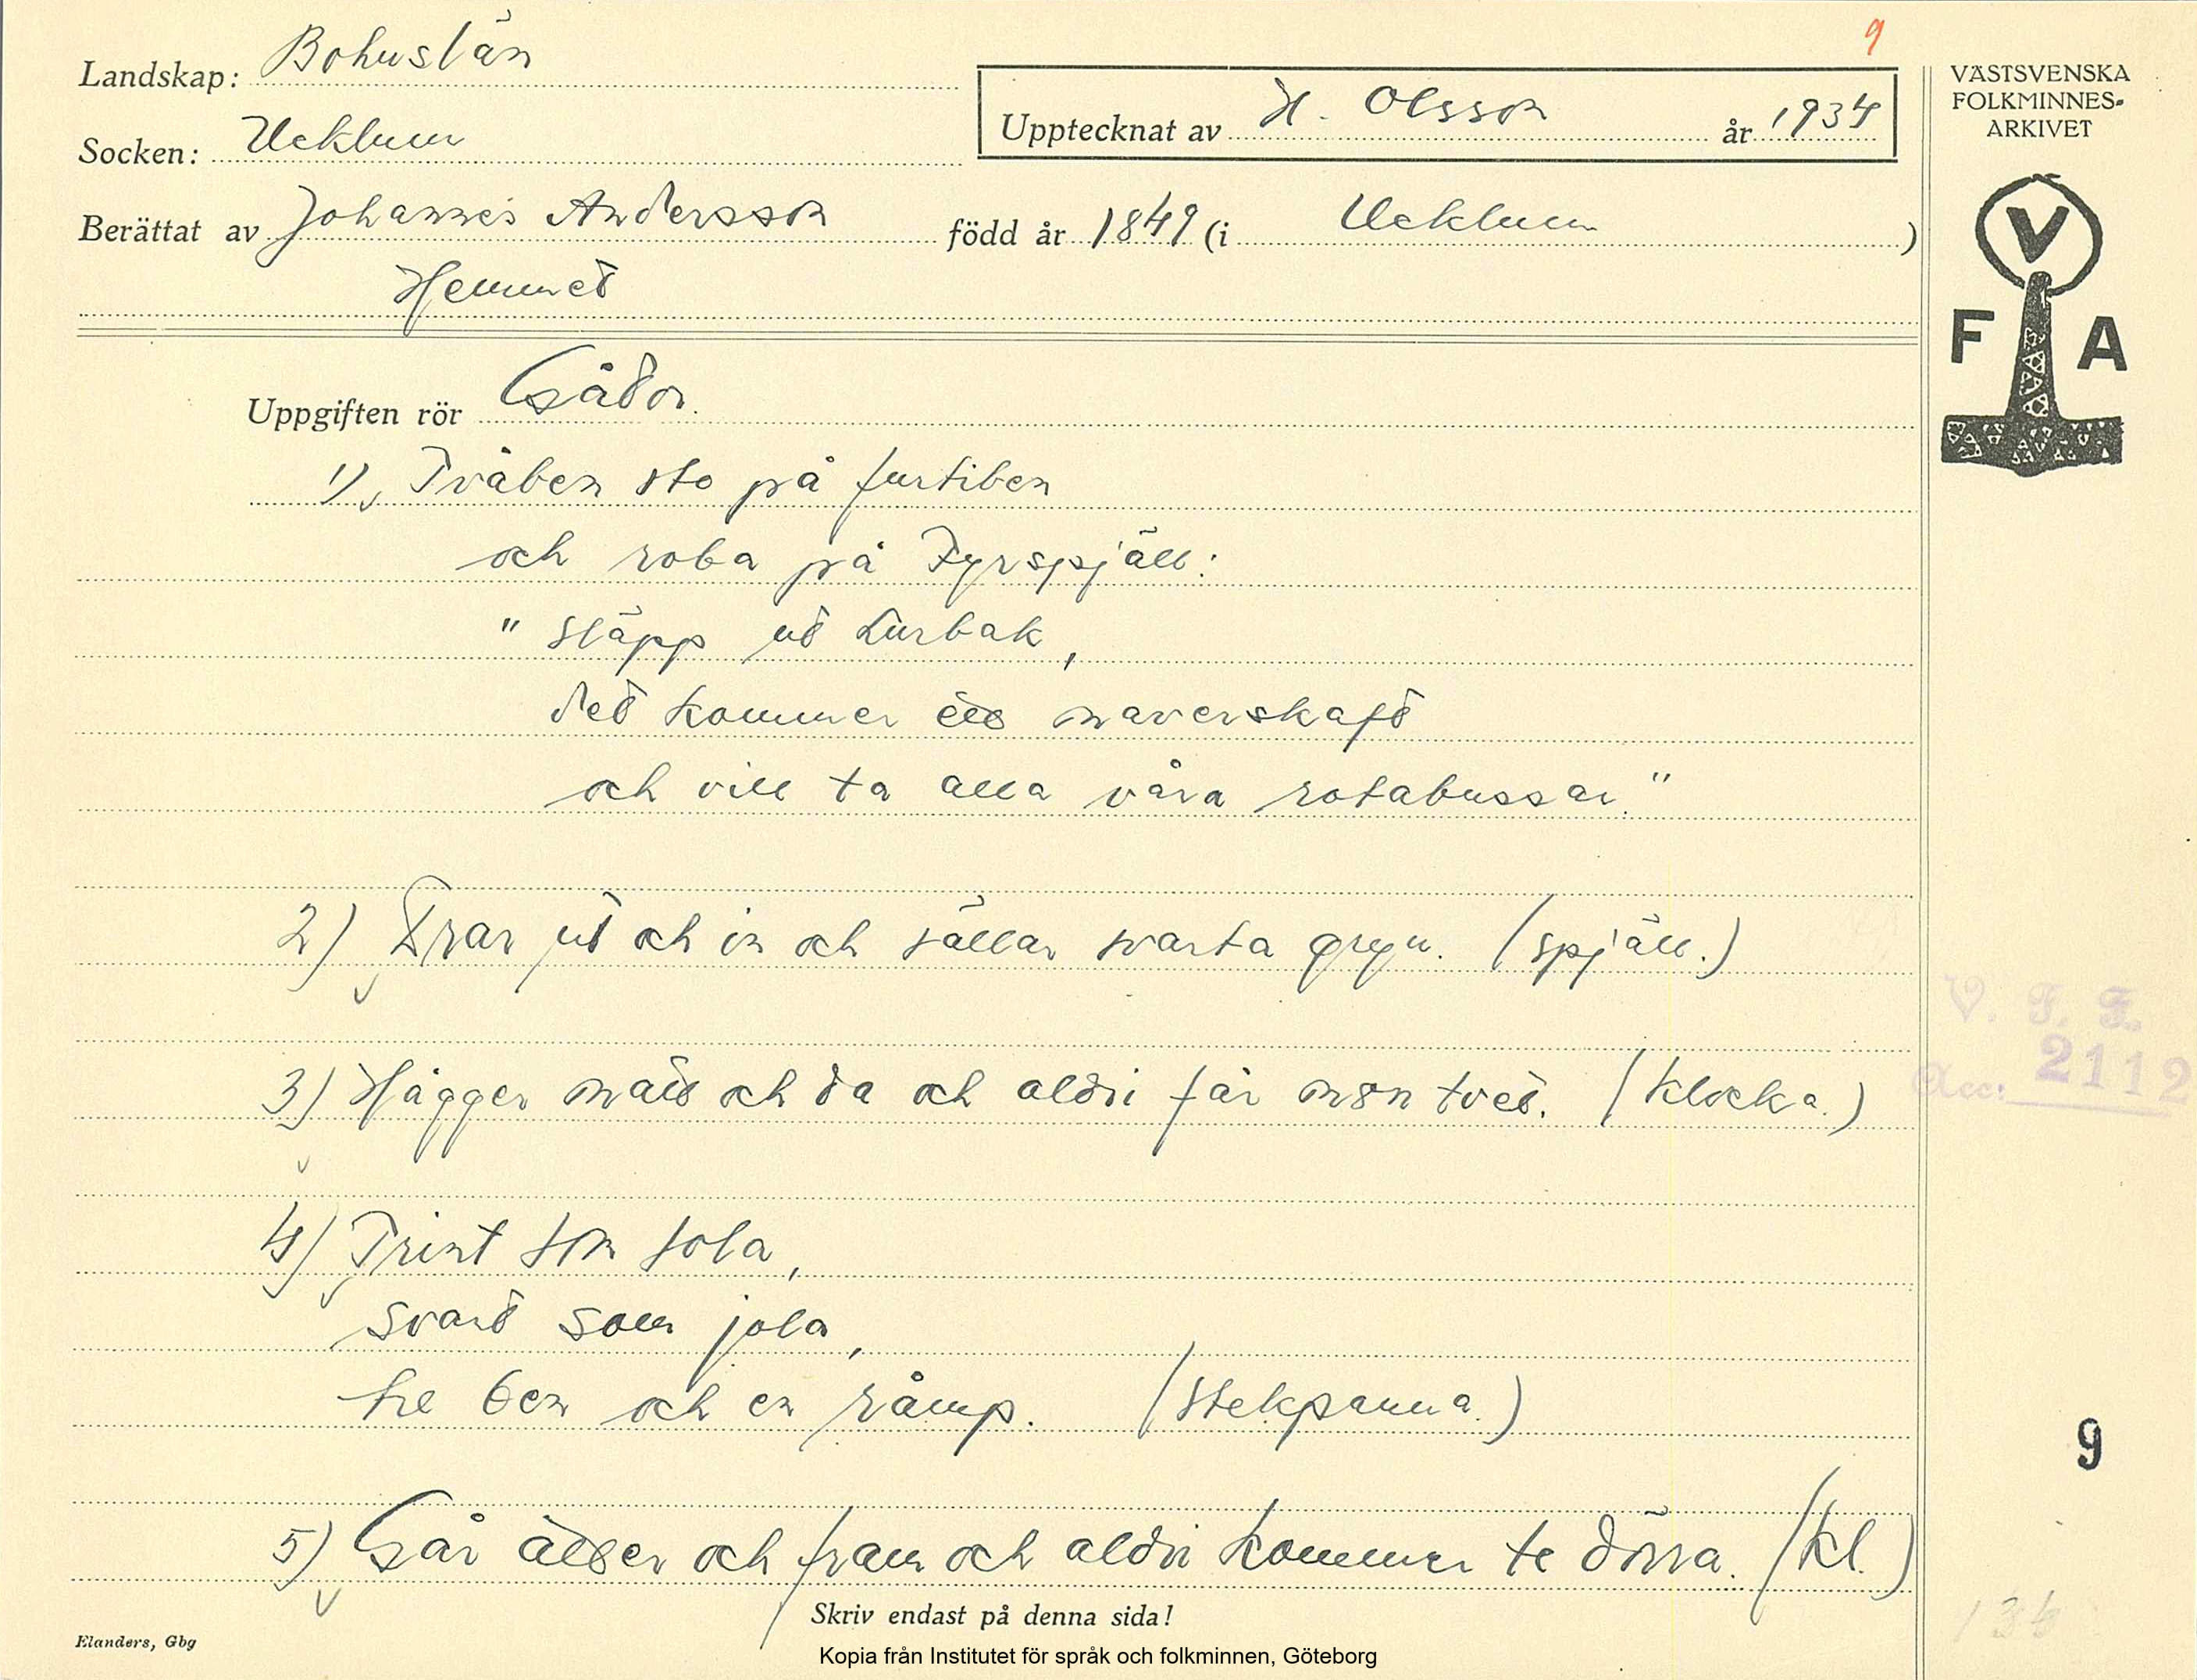 9
Landskap: Bohuslän
Socken: Ucklum
Upptecknat av H. Olsson år 1934
Berättat av Johannes Andersson född år 1849 (i Ucklum)
Hemmet
VÄSTSVENSKA
FOLKMINNES-
ARKIVET
V
F A
Uppgiften rör Gåtor.
1) Tvåben sto på furtiben
och roba på Fyrspjäll:
"släpp ut Lurbak,
det kommer ett naverskaft
och vill ta alla våra rotabussar."
2) Drar ut och in och sållar svarta gryn. (spjäll.)
3) Hågger natt och da och aldri får non tvet. (klocka.)
4) Trint som sola,
svart som jola,
tre ben och en råmp. (stekpanna.)
5) Går ätter och fram och aldri kommer te dörra. (kl.)
V. F. F.
Acc: 2112
9
Skriv endast på denna sida!
Elanders, Gbg
Kopia från Institutet för språk och folkminnen, Göteborg